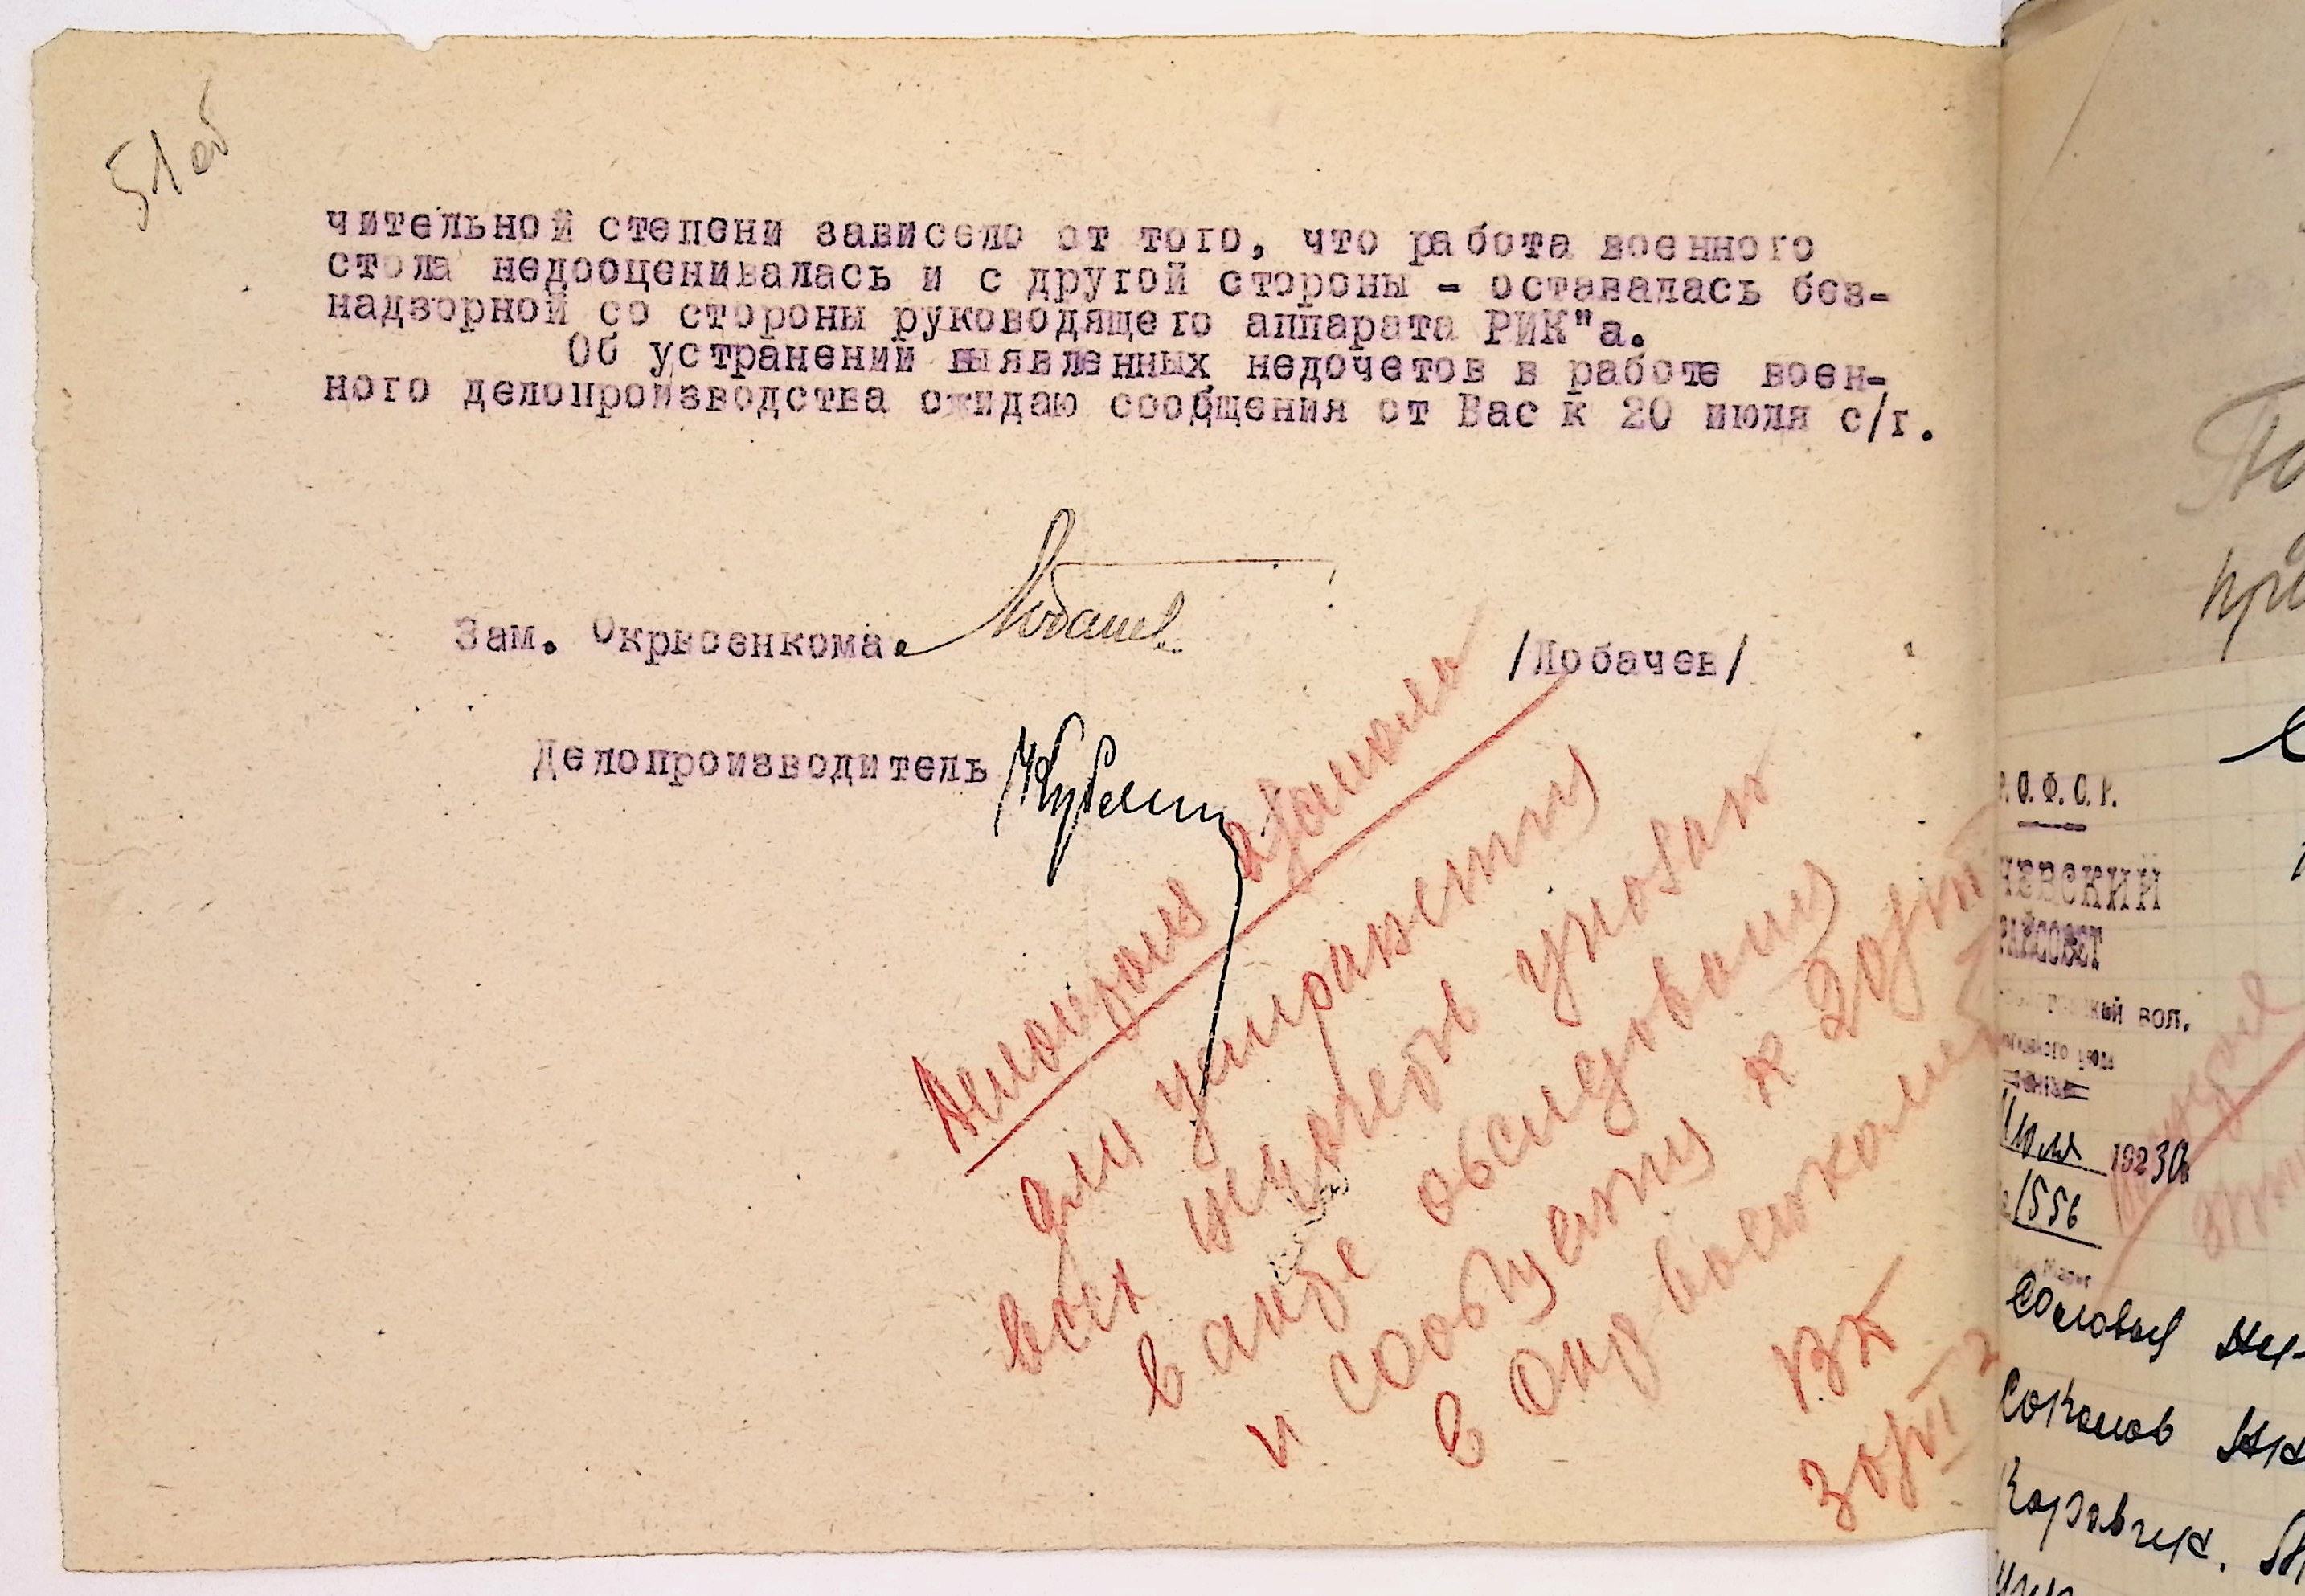 51 об
чительной степени зависело от того, что работа военного
стола недооценивалась и с другой стороны - оставалась без-
надзорной со стороны руководящего аппарата РИК"а.
Об устранении выявленных недочетов в работе воен-
ного делопроизводства ожидаю сообщения от Вас к 20 июля с/г.
Зам. Окрвоенкома
/Лобачев/
Делопроизводитель
для
всех недочетов указан
в акте обследования
и сообщения к 20/VII
в Окрвоенкомат
ВК
30/VI
По
при
Р. С. Ф. С. Р.
ЧЕВСКИЙ
РАЙСОВЕТ
вол.
Июля 1923 0
1556
Соловьев Ни-
Соколов